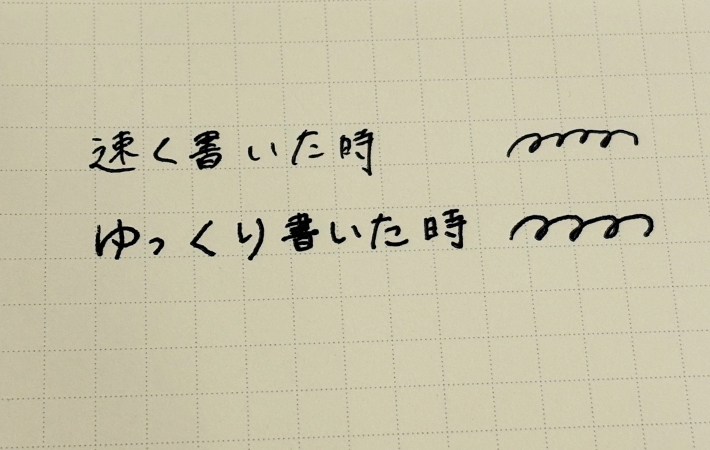 速く書いた時
ゆっくり書いた時